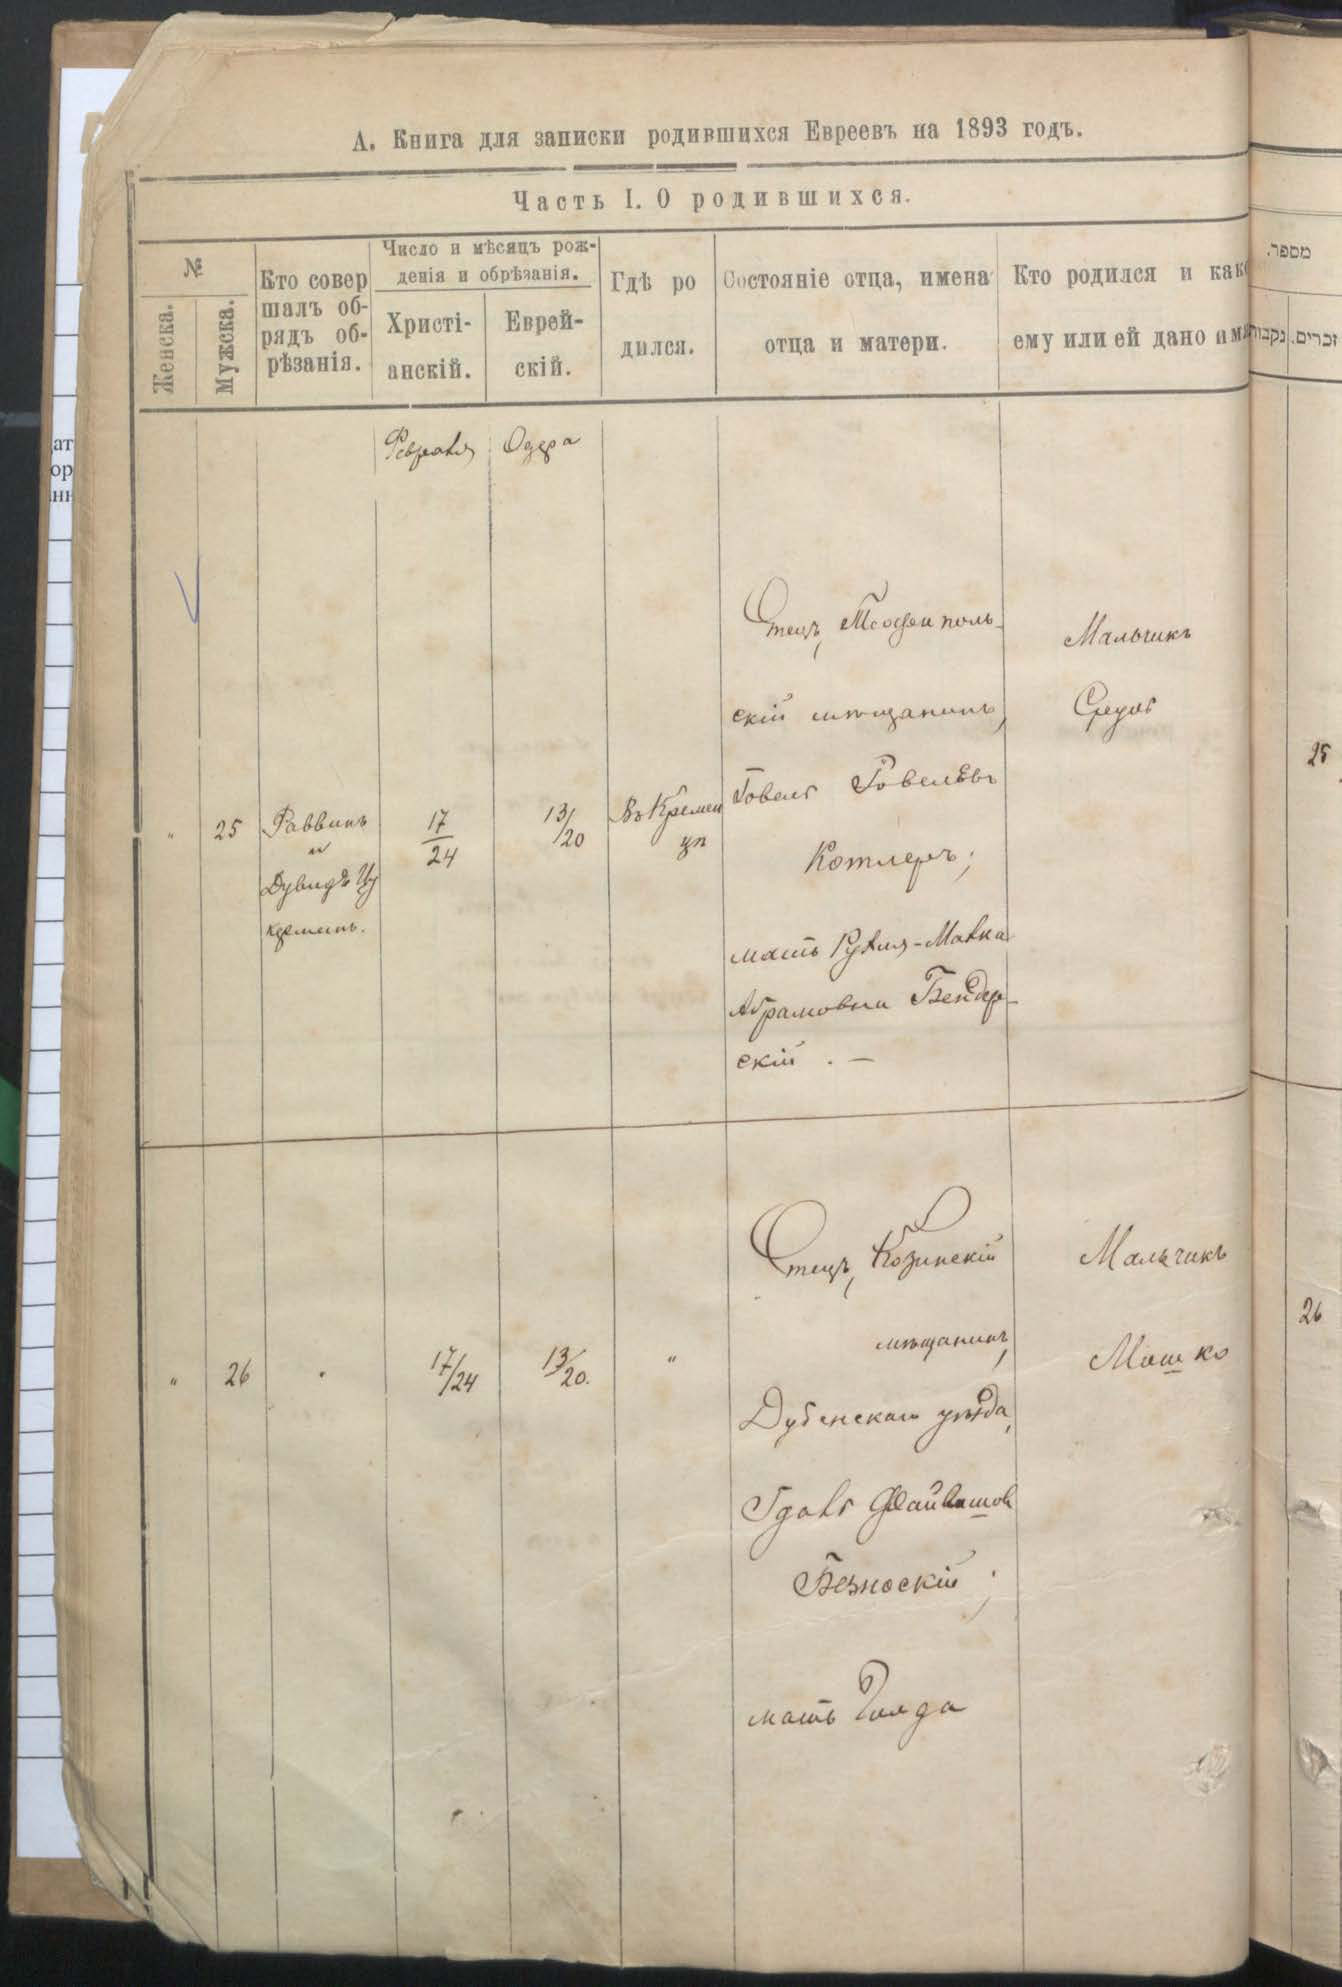 А. Книга для записки родившихся Евреевъ на 1893 годъ.
Часть I. О родившихся.
№
Женска.
Мужска.
Кто совер
шалъ об-
рядъ об-
рѣзанія.
Число и мѣсяцъ рож-
денія и обрѣзанія.
Христі-
анскій.
Еврей-
скій.
Гдѣ ро
дился.
Состояніе отца, имена
отца и матери.
Кто родился и как
ему или ей дано им
מספר.
זכרים.
נקבות
Февраля
Одера
"
25
Раввинъ
и
Дувидъ
17
24
13/20
Въ Кремен
цѣ
Отецъ, Теофиполь-
скій мѣщанинъ,
Говелѣвъ
Котлеръ;
мать Рухля-Малка
Абрамовна Бендер-
скій. —
Мальчикъ
Сруль
25
"
26
"
17/24
13/20.
"
Отецъ, Козинскій
мѣщанинъ,
Дубенскаго уѣзда,
Гдаль Файвишов
Безноскій;
мать Голда
Мальчикъ
Мошко
26
ат
ор
нн